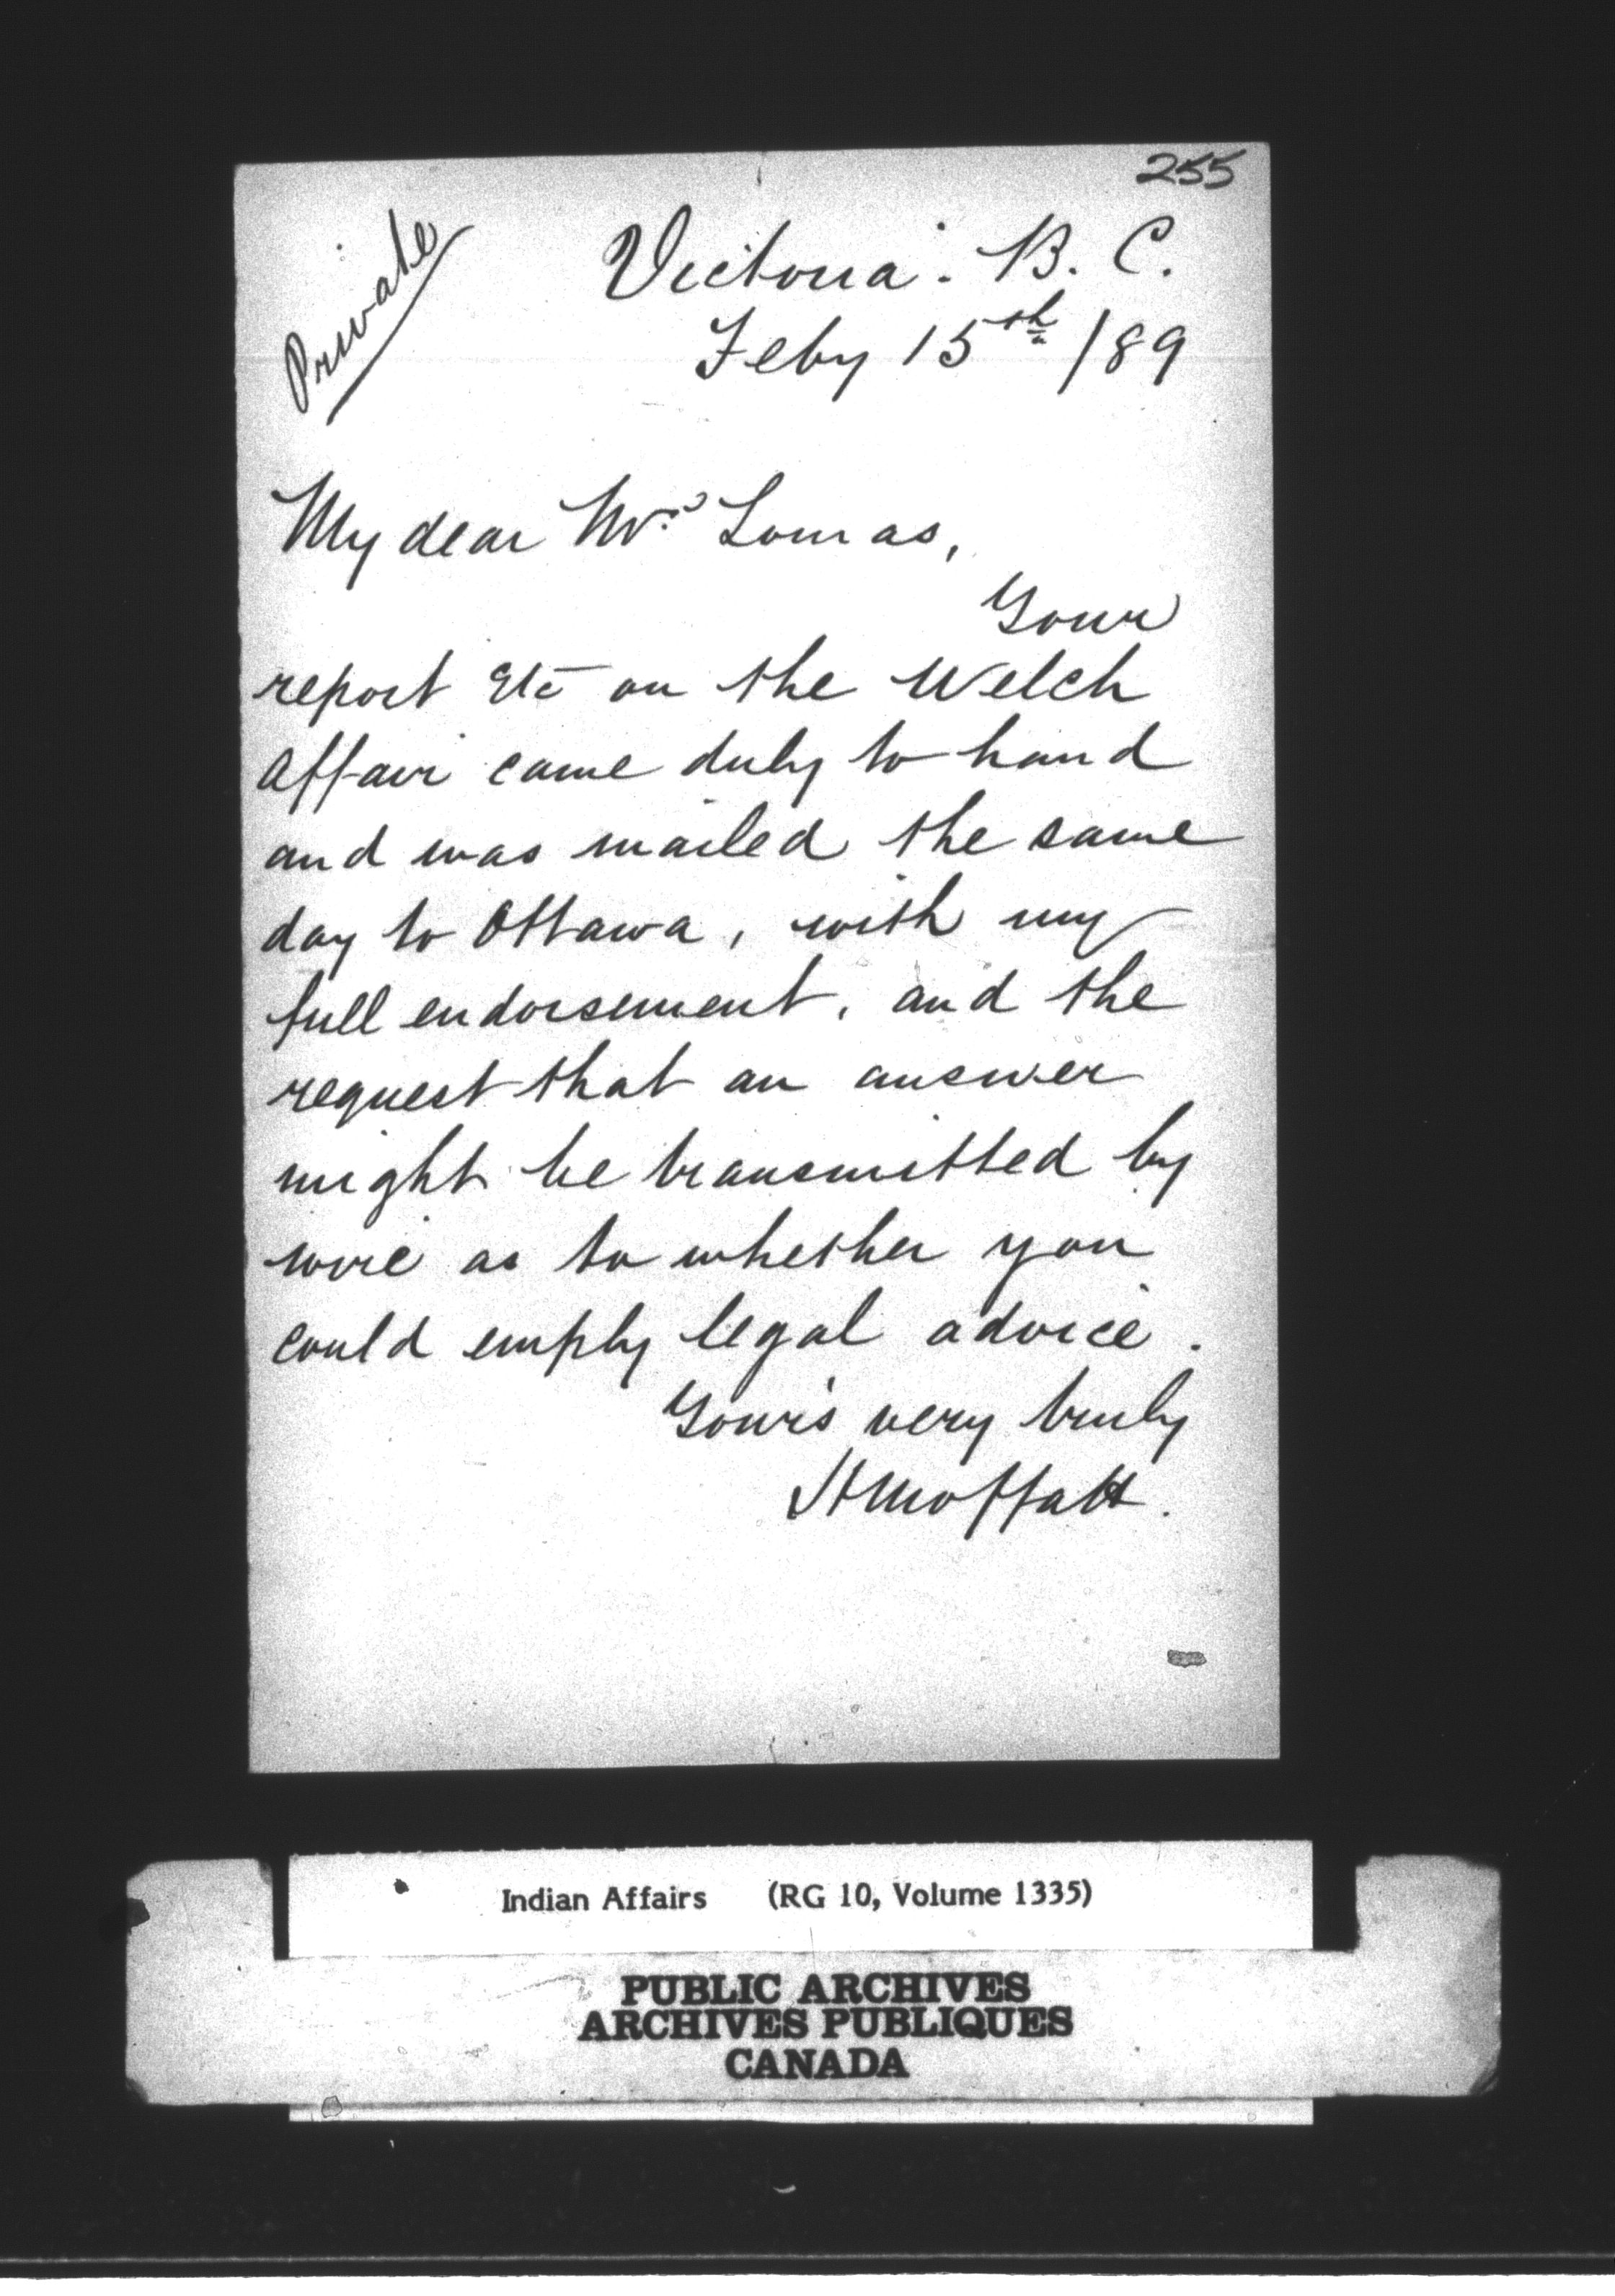 255
Private
Victoria. B. C.
Feby 15th /89
My dear Mr. Lomas,
Your
report Etc on the Welch
Affair came duly to hand
and was mailed the same
day to Ottawa, with my
full endorsement, and the
request that an answer
might be transmitted by
wire as to whether you
could employ legal advice.
Yours very truly
H Moffatt.
Indian Affairs (RG 10, Volume 1335)
PUBLIC ARCHIVES
ARCHIVES PUBLIQUES
CANADA